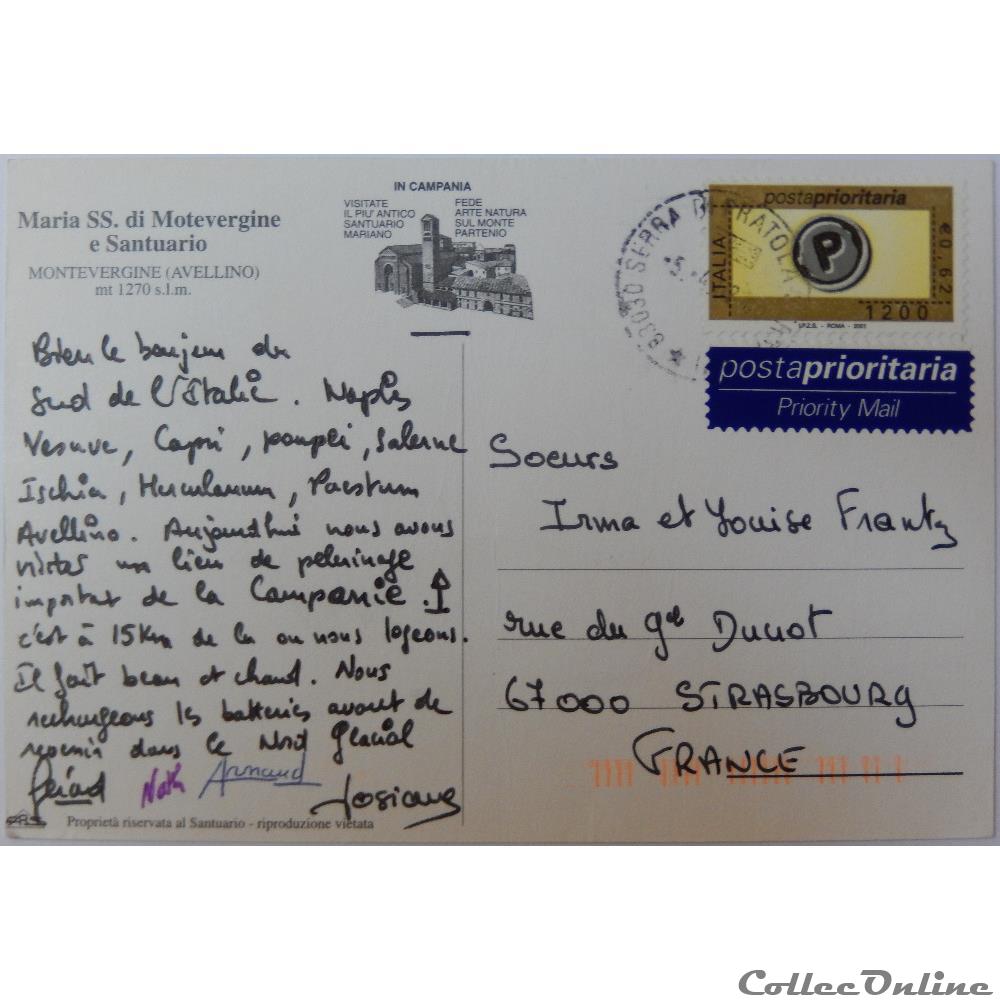 Maria SS. di Motevergine
e Santuario
MONTEVERGINE (AVELLINO)
mt 1270 s.l.m.
IN CAMPANIA
VISITATE
IL PIU' ANTICO
SANTUARIO
MARIANO
FEDE
ARTE NATURA
SUL MONTE
PARTENIO
83030 SERRA DI PRATOLA
postaprioritaria
P
ITALIA
€0,62
1200
I.P.Z.S. - ROMA - 2001
postaprioritaria
Priority Mail
Bien le bonjour du
Sud de l'Italie. Naples
Vesuve, Capri, pompei, Salerne
Ischia, Herculanum, Paestum
Avellino. Aujourd'hui nous avons
visiter un lieu de pelerinage
important de la Campanie.
c'est à 15 Km de la ou nous logeons.
Il fait beau et chaud. Nous
rechargeons les batteries avant de
revenir dans le Nord Glacial
Gérard Nath Armand Josiane
Proprietà riservata al Santuario - riproduzione vietata
Soeurs
Irma et Louise Frantz
rue du gal Ducrot
67000 STRASBOURG
FRANCE
CollecOnline